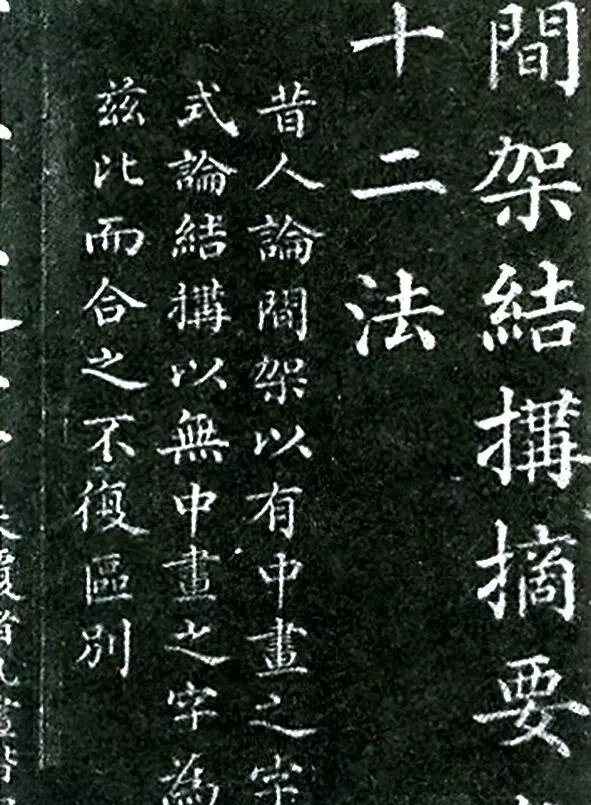 間架結搆摘要
十二法
昔人論間架以有中畫之字
式論結搆以無中畫之字為
茲比而合之不復區別